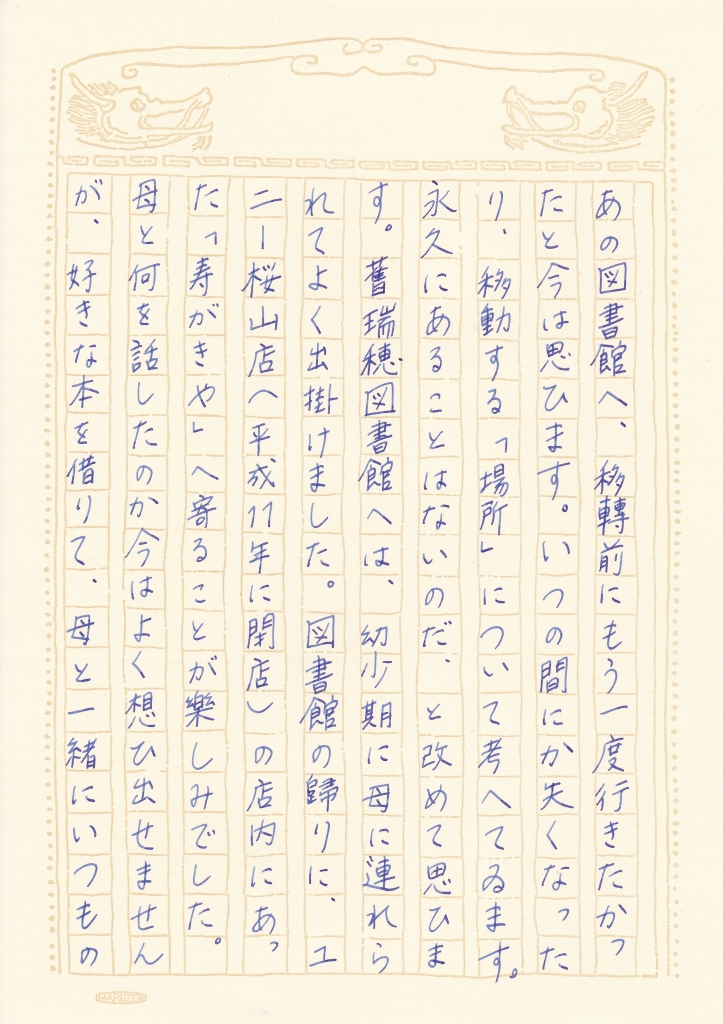 あの図書館へ、移轉前にもう一度行きたかつ
たと今は思ひます。いつの間にか失くなつた
り、移動する「場所」について考へてゐます。
永久にあることはないのだ、と改めて思ひま
す。舊瑞穂図書館へは、幼少期に母に連れら
れてよく出掛けました。図書館の歸りに、ユ
ニー桜山店へ平成11年に閉店）の店内にあつ
た「寿がきや」へ寄ることが樂しみでした。
母と何を話したのか今はよく想ひ出せません
が、好きな本を借りて、母と一緒にいつもの
MARUZEN